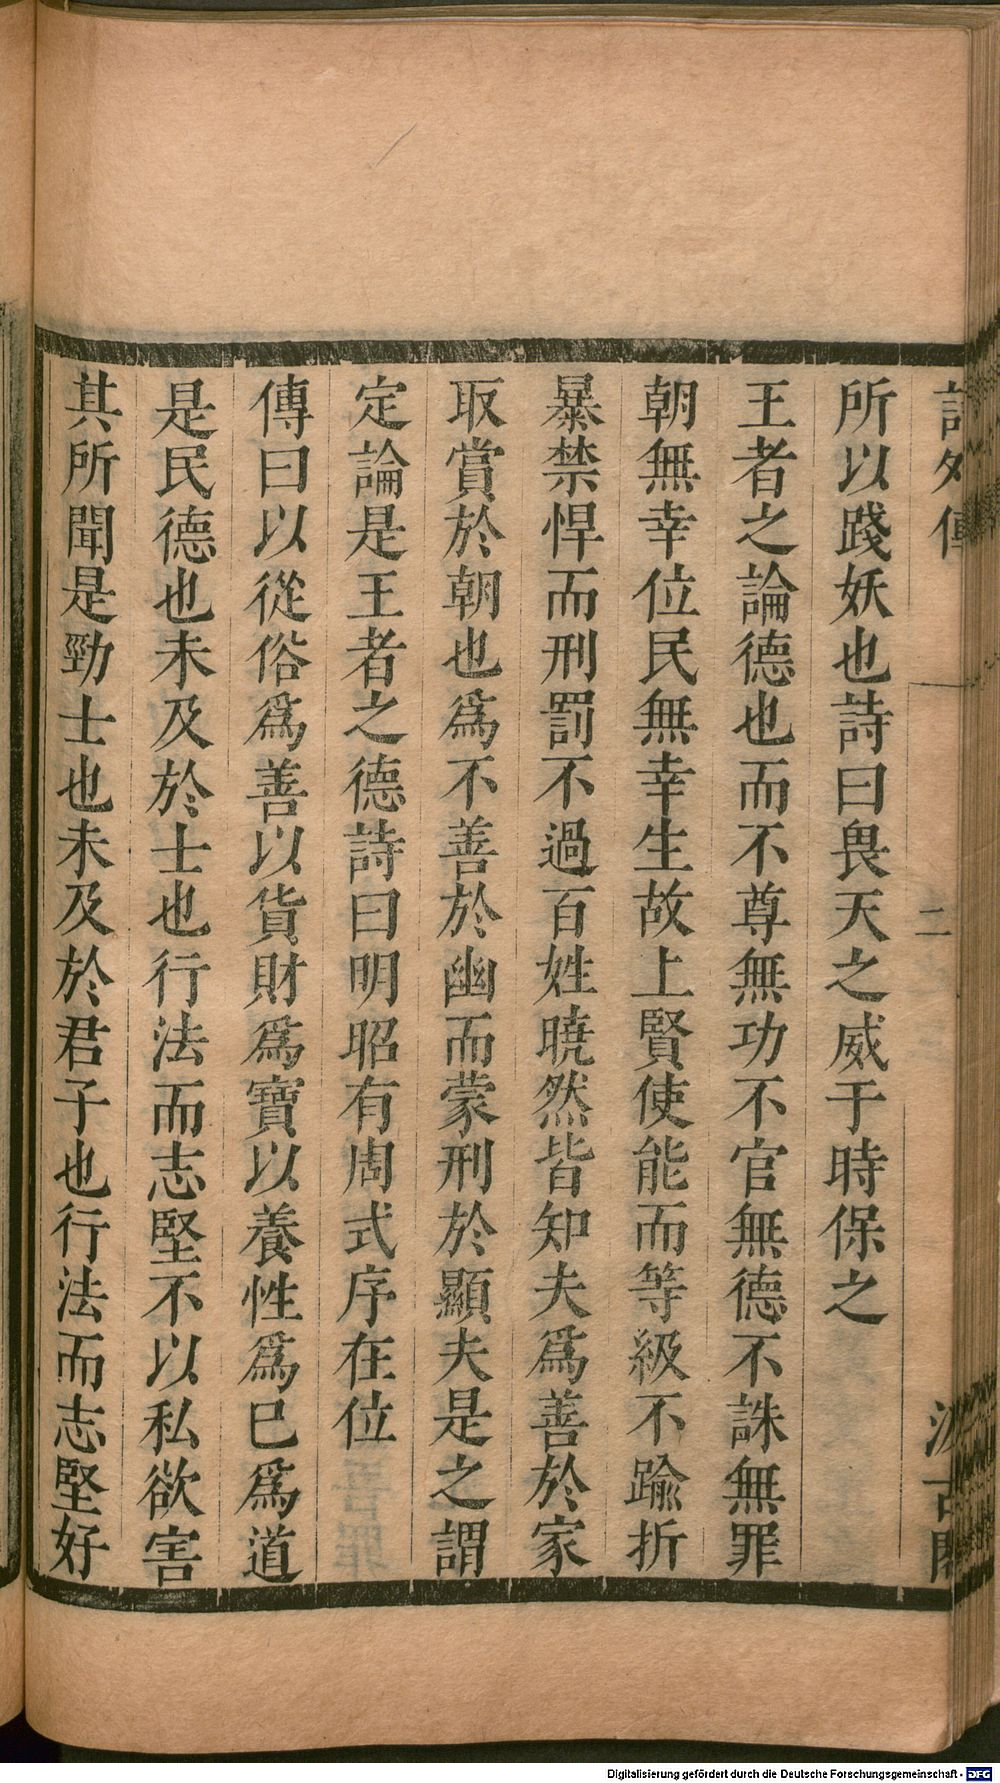 詩外傳 二 汲古閣
所以踐妖也詩曰畏天之威于時保之
王者之論德也而不尊無功不官無德不誅無罪
朝無幸位民無幸生故上賢使能而等級不踰折
暴禁悍而刑罰不過百姓曉然皆知夫爲善於家
取賞於朝也爲不善於幽而蒙刑於顯夫是之謂
定論是王者之德詩曰明昭有周式序在位
傳曰以從俗爲善以貨財爲寶以養性爲已爲道
是民德也未及於士也行法而志堅不以私欲害
其所聞是勁士也未及於君子也行法而志堅好
Digitalisierung gefördert durch die Deutsche Forschungsgemeinschaft - DFG